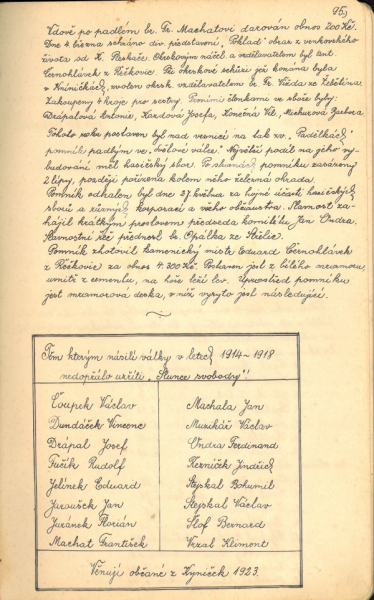 95)
Vdově po padlém br. Fr. Machatovi darován obnos 200 Kč.
Dne 4. března sehráno div. představení, „Poklad" obraz z venkovského
života od K. Paskače. Okrskovým náčel. a vzdělavatelem byl Ant.
Černohlávek z Řečkovic. Při okrskové schůzi jež konána byla
v Kníničkách, zvolen okrsk. vzdělavatelem br. Fr. Vižda ze Žebětína.
Zakoupeny 4 kroje pro sestry. Prvními členkami ve sboru byly:
Drápalová Antonie, Kardová Josefa, Konečná Vil., Michnova Barbora
Tohoto roku postaven byl nad vesnicí na tak zv. „Padělkách"
pomník padlým ve „světové válce". Největší podíl na jeho vy-
budování měl hasičský sbor. Po stranách pomníku zasazeny
2 lípy, později pořízena kolem něho železná ohrada.
Pomník odhalen byl dne 27. května za hojné účasti hasičských
sborů a různých korporací a všeho občanstva. Slavnost za-
hájil krátkým proslovem předseda komitétu Jan Ondra.
Slavnostní řeč přednesl br. Opálka ze Střelic.
Pomník zhotovil kamenický mistr Eduard Černohlávek
z Řečkovic za obnos 4.300 Kč. Postaven jest z bílého mramoru
umělé z cementu, na hoře leží lev. Uprostřed pomníku
jest mramorová deska, v níž vyryto jest následující:
Těm kterým násilí války v letech 1914 ~ 1918
nedopřálo užíti „Slunce svobody"!
Coupek Václav Machala Jan
Dundáček Vincenc Muzikář Václav
Drápal Josef Ondra Ferdinand
Fučík Rudolf Perníček Jindřich
Jelínek Eduard Stejskal Bohumil
Jaroušek Jan Stejskal Václav
Juránek Florián Šlof Bernard
Machat František Vrzal Kliment
Věnují občané z Kyniček 1923.